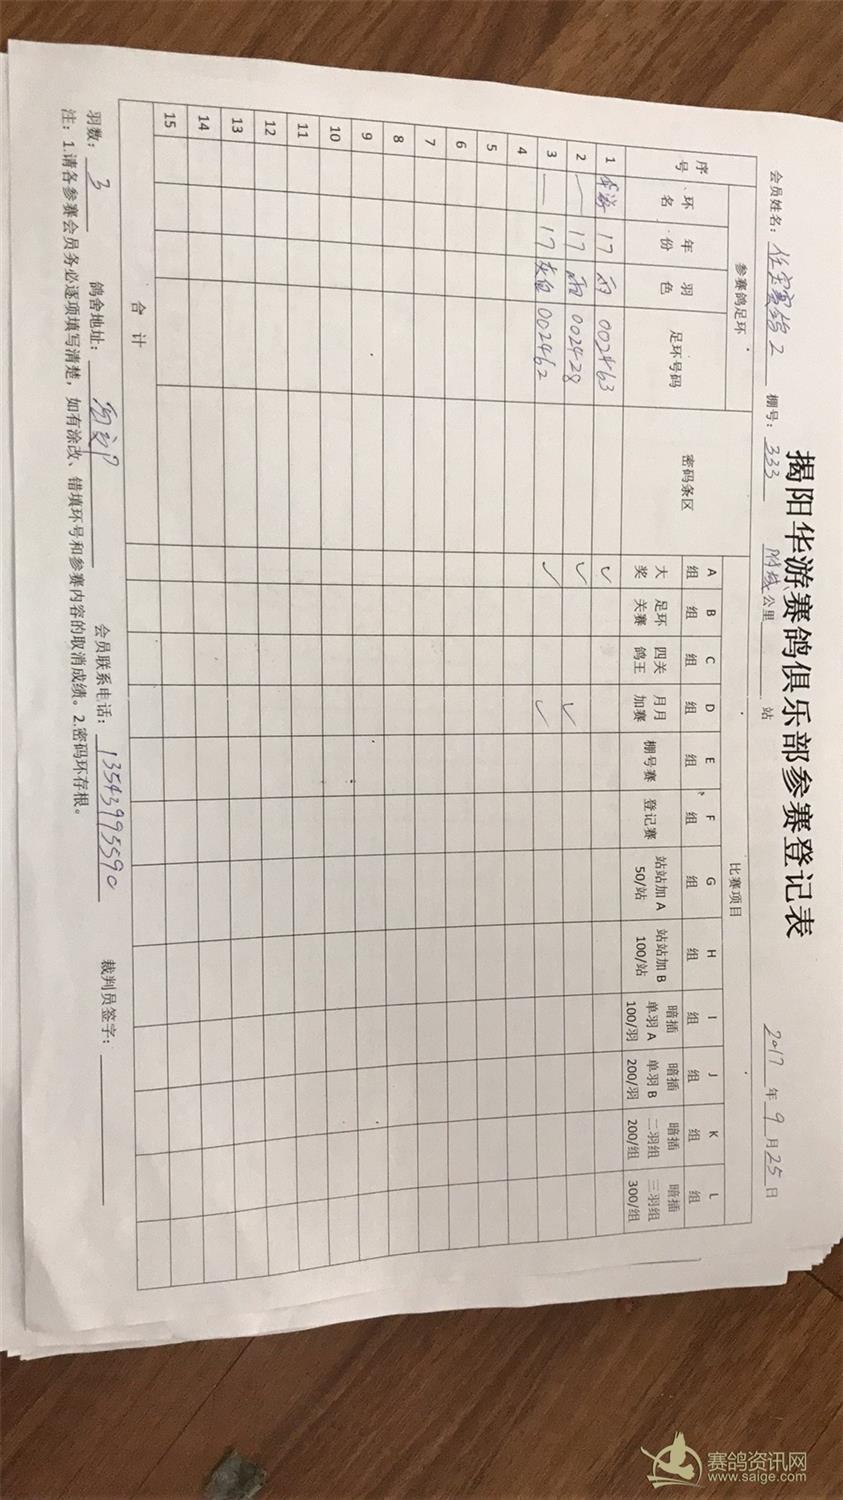 揭阳华游赛鸽俱乐部参赛登记表
会员姓名： 赛鸽2 棚号：333 附城公里 站 2017年9月25日
序号 参赛鸽足环 密码条区 比赛项目
环名 年份 羽色 足环号码 A组 B组 C组 D组 E组 F组 G组 H组 I组 J组 K组 L组
大奖 足环关赛 四关鸽王 月月加赛 棚号赛 登记赛 站站加A 50/站 站站加B 100/站 暗插单羽A 100/羽 暗插单羽B 200/羽 暗插二羽组 200/组 暗插三羽组 300/组
1 华游 17 雨 002463 ✓
2 — 17 雨白 002428 ✓ ✓
3 — 17 灰白 002462 ✓ ✓
4
5
6
7
8
9
10
11
12
13
14
15
合计
羽数：3 鸽舍地址： 会员联系电话：13543995590 裁判员签字：
注：1.请各参赛会员务必逐项填写清楚，如有涂改、错填环号和参赛内容的取消成绩。2.密码环存根。
赛鸽资讯网
www.saige.com